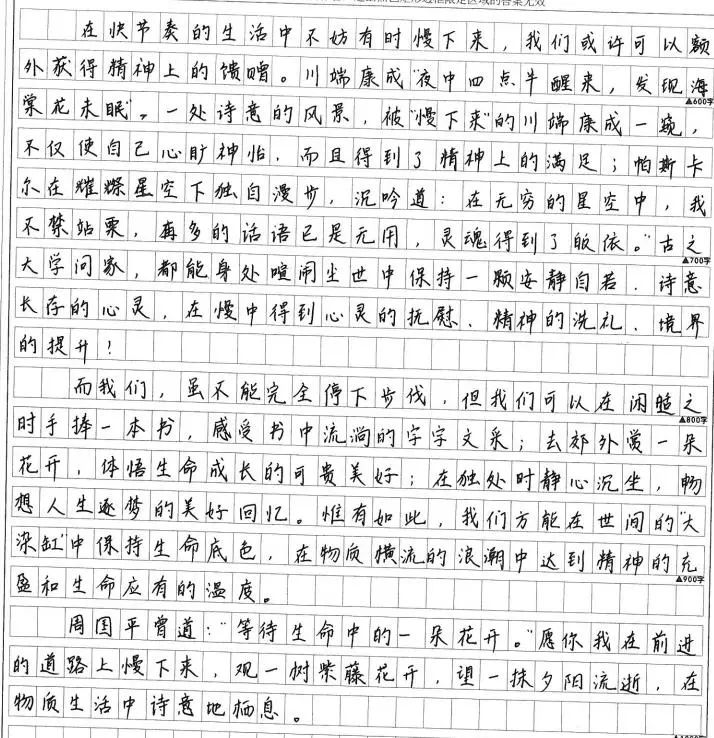 在快节奏的生活中不妨有时慢下来，我们或许可以额
外获得精神上的馈赠。川端康成"夜中四点半醒来，发现海
▲600字
棠花未眠"。一处诗意的风景，被"慢下来"的川端康成一窥，
不仅使自己心旷神怡，而且得到了精神上的满足；帕斯卡
尔在耀煤星空下独自漫步，沉吟道：在无穷的星空中，我
不禁站栗，再多的话语已是无用，灵魂得到了皈依。"古之
▲700字
大学问家，都能身处喧闹尘世中保持一颗安静自若、诗意
长存的心灵，在慢中得到心灵的抚慰、精神的洗礼、境界
的提升！
而我们，虽不能完全停下步伐，但我们可以在闲暇之
▲800字
时手捧一本书，感受书中流淌的字字文采；去郊外赏一朵
花开，体悟生命成长的可贵美好；在独处时静心沉坐，畅
想人生逐梦的美好回忆。惟有如此，我们方能在世间的"大
染缸"中保持生命底色，在物质横流的浪潮中达到精神的充
▲900字
盈和生命应有的温度。
周国平曾道："等待生命中的一朵花开。"愿你我在前进
的道路上慢下来，观一树紫藤花开，望一抹夕阳流逝，在
物质生活中诗意地栖息。